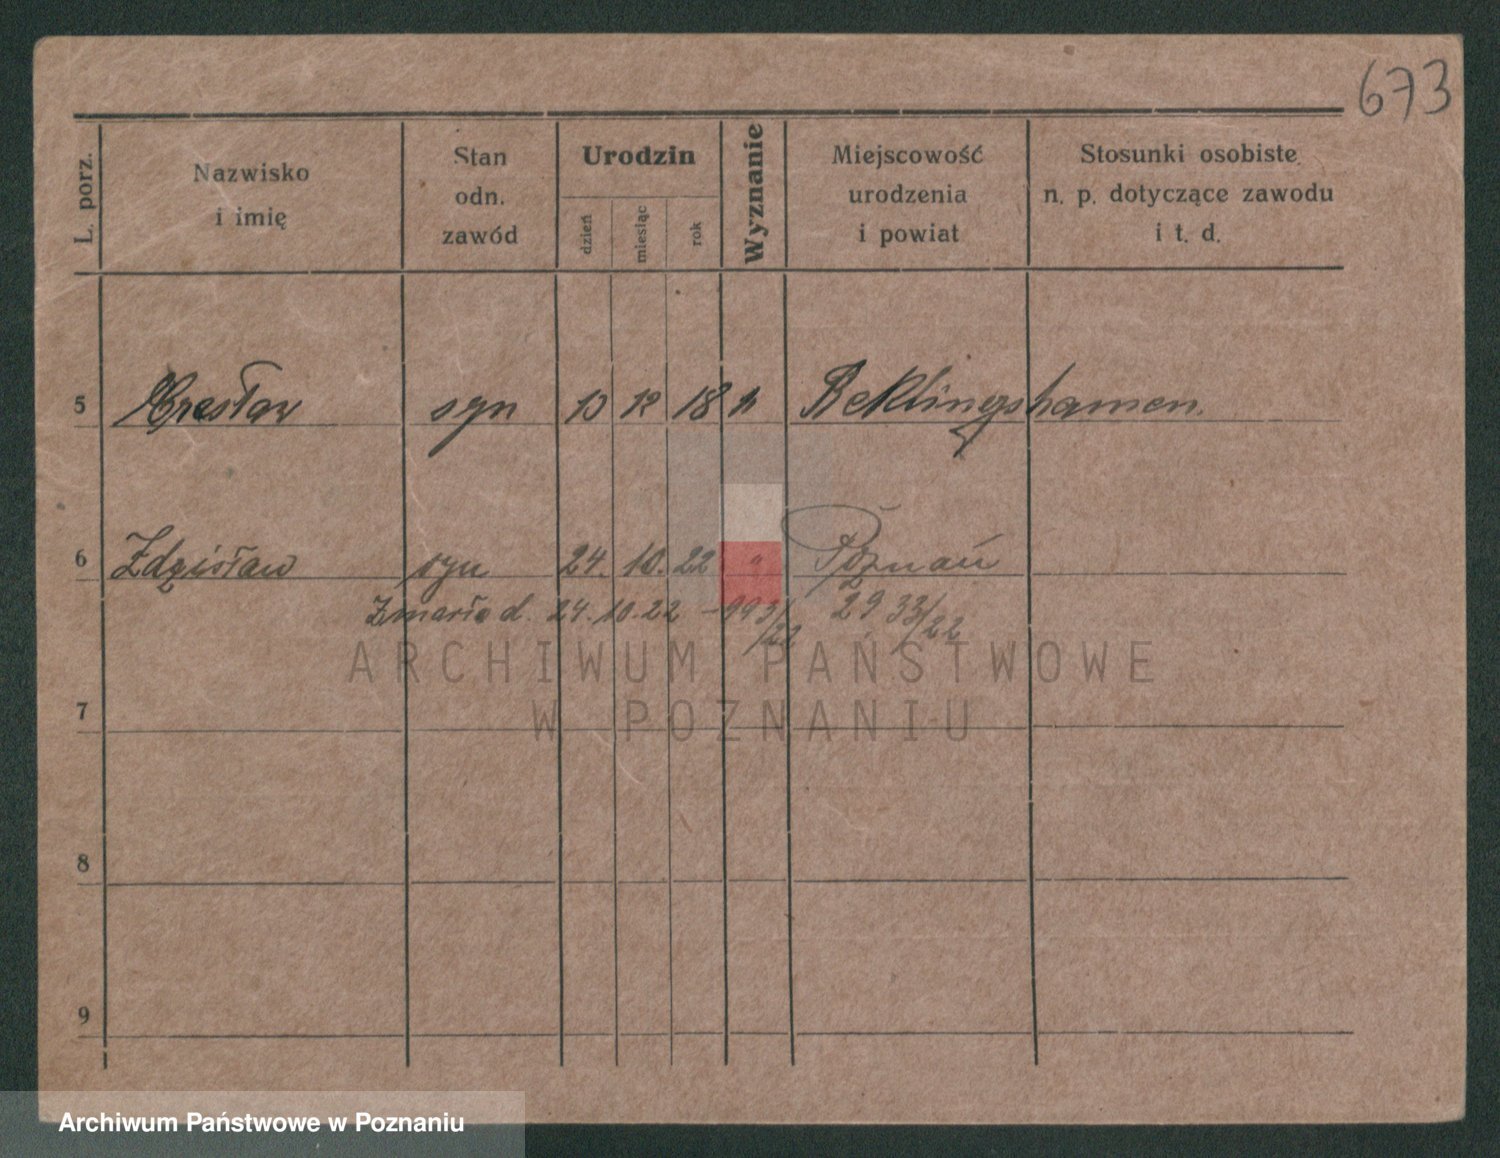 673
L. porz.
Nazwisko
i imię
Stan
odn.
zawód
Urodzin
dzień
miesiąc
rok
Wyznanie
Miejscowość
urodzenia
i powiat
Stosunki osobiste
n. p. dotyczące zawodu
i t. d.
5 syn 13 12 18 Reklingshamen.
6 Zdzisław syn 24. 10. 22 " Poznań
Zmarło d. 24.10.22 - 993/22 29 33/22
ARCHIWUM PAŃSTWOWE
W POZNANIU
7
8
9
Archiwum Państwowe w Poznaniu